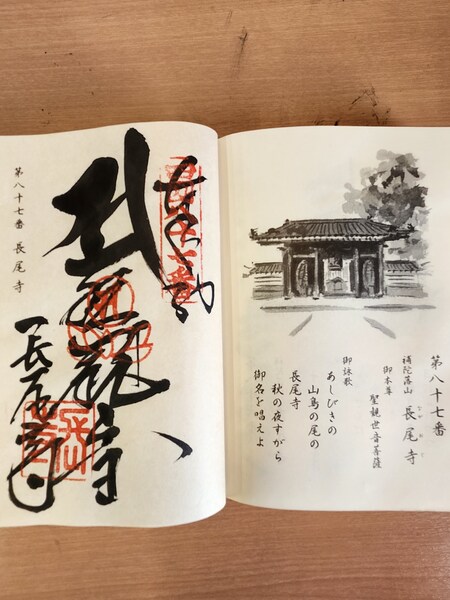 第八十七番
補陀落山 長尾寺
御本尊 聖観世音菩薩
御詠歌
あしびきの
山鳥の尾の
長尾寺
秋の夜すがら
御名を唱えよ
長尾寺
第八十七番 長尾寺